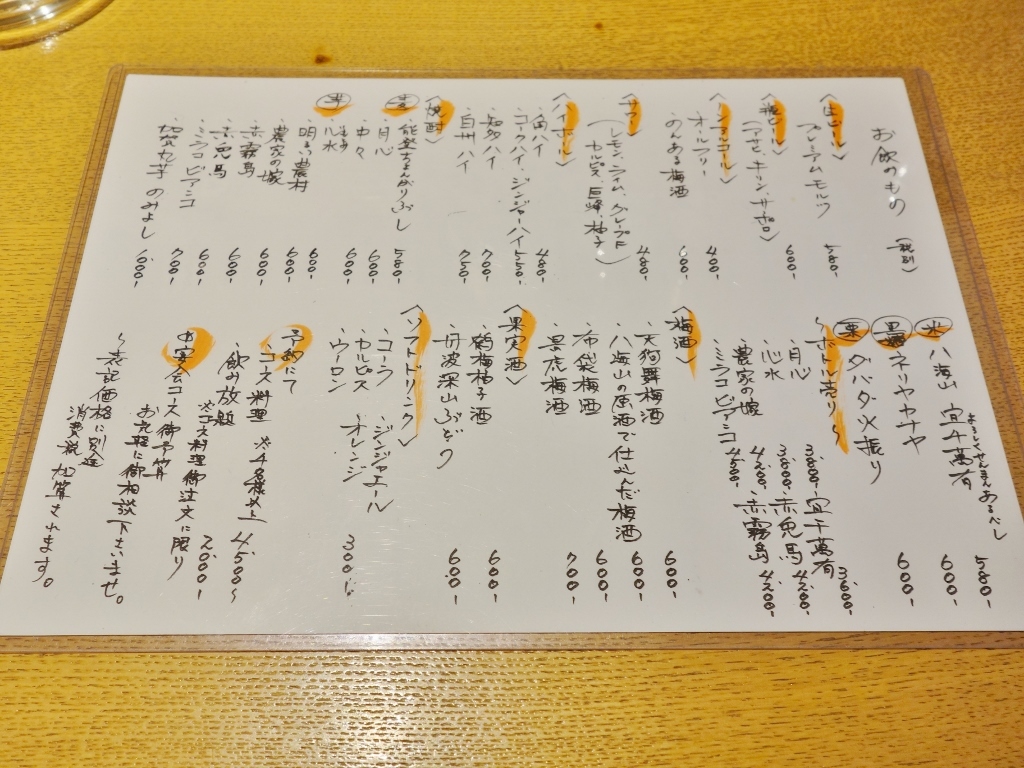 お飲みもの (税別)
〈生ビール〉
プレミアムモルツ 580-
〈瓶ビール〉
(アサヒ、キリン、サッポロ) 600-
〈ノンアルコール〉
・オールフリー 400-
・のんある梅酒 600-
〈サワー〉
(レモン、ライム、グレープF 480-
カルピス、巨峰、柚子)
〈ハイボール〉
・角ハイ 480-
・コークハイ、ジンジャーハイ 550-
・知多ハイ 700-
・白州ハイ 750-
〈焼酎〉
麦 ・能登ちょんがりぶし 580-
・月心 600-
・中々 600-
芋
・明るい農村 600-
・農家の嫁 600-
・赤霧島 600-
・赤兎馬 600-
・ミラコビアンコ 600-
・加賀丸芋のみよし 700-
米 八海山 宜千萬有 580-
よろしくせんまんあるべし
黒 ネリヤカナヤ 600-
栗 ダバダ火振り 600-
〜ボトル売り〜
・月心 3800- ・宜千萬有 3600-
・心水 3800- ・赤兎馬 4200-
・農家の嫁 4200- ・赤霧島 4200-
・ミラコビアンコ 4500-
〈梅酒〉
・天狗舞梅酒 600-
・八海山の原酒で仕込んだ梅酒 600-
・布袋梅酒 600-
・景虎梅酒 700-
〈果実酒〉
・鶴梅柚子酒 600-
・丹波深山ぶどう 600-
〈ソフトドリンク〉
・コーラ ・ジンジャエール
・カルピス ・オレンジ
・ウーロン 300-
予約にて
・コース料理 ※4名様以上 4,500〜
・飲み放題 2,000-
※コース料理御注文に限り
お宴会コース御予算
お気軽に御相談下さいませ。
〜表記価格に別途
消費税加算されます。